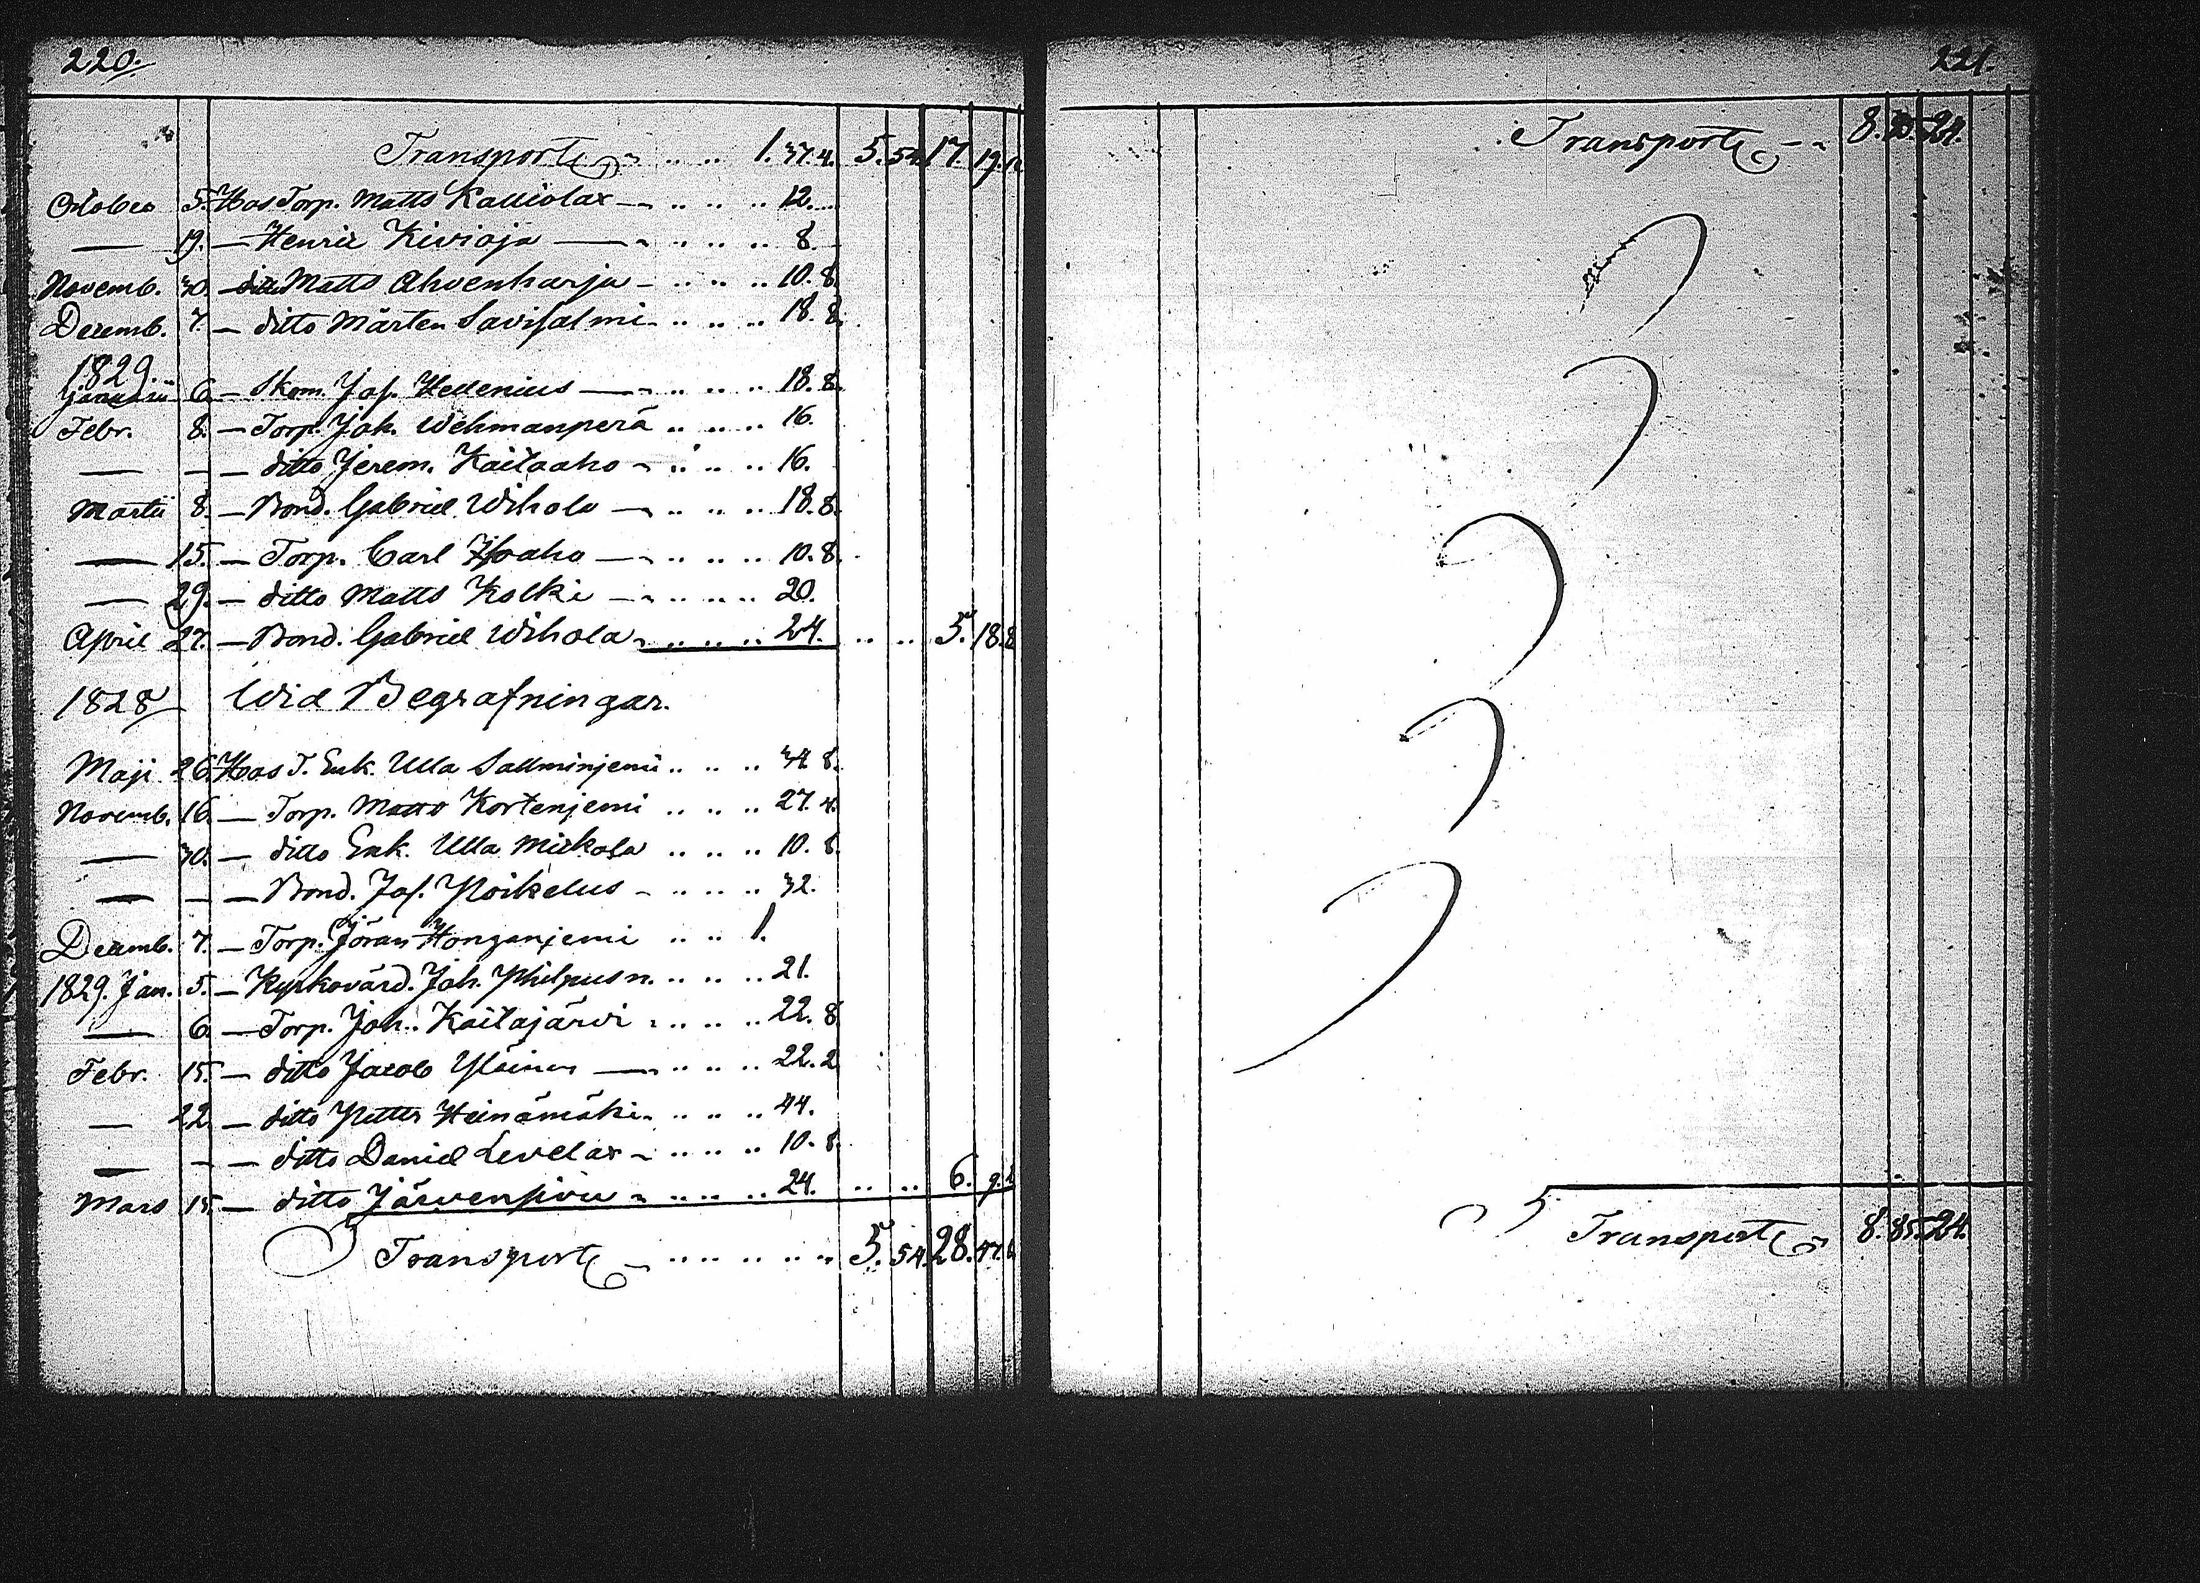 220.
Transport 1. 37. 4. 5. 54. 17. 19.
October 5. Hos Torp. Matts Kalliolax 12.
— 19. — Henric Kivioja — 8.
Novemb. 30. — ditto Matts Ahvenharju 10. 8.
Decemb. 7. — ditto Mårten Savisalmi 18. 8.
1829.
Januarii 6. — Skom. Jos. Hellenius — 18. 8.
Febr. 8. — Torp. Joh. Wehmanperä 16.
— — — ditto Jerem. Kaitaaho 16.
Martii 8. — Bond. Gabriel Wihola — 18. 8.
— 15. — Torp. Carl Isoaho — 10. 8.
— 29. — ditto Matts Kolki — 20.
April 27. — Bond. Gabriel Wihola 24. 5. 18. 8
1828 Wid Begrafningar.
Maji 26. Hos T. Enk. Ulla Salminjemi 34. 8.
Novemb. 16. — Torp. Matts Kortenjemi 27. 4.
— 30. — ditto Enk. Ulla Mickola 10. 8.
— — — Bond. Jos. Poikelus 32.
Decemb. 7. — Torp. Jöran Honganjemi 1.
1829. Jan. 5. — Kyrkovärd. Joh. Philpusn. 21.
— 6. — Torp. Joh. Kaitajärvi 22. 8.
Febr. 15. — ditto Jacob Yläinen — 22. 2
— 22. — ditto Petter Heinämäki 44.
— — — ditto Daniel Levelax 10. 8.
Mars 15. — ditto Järvenpää 24. 6. 9.
Transport 5. 54. 28. 47.
221.
Transport 8. 85. 24.
Transport 8. 85. 24.